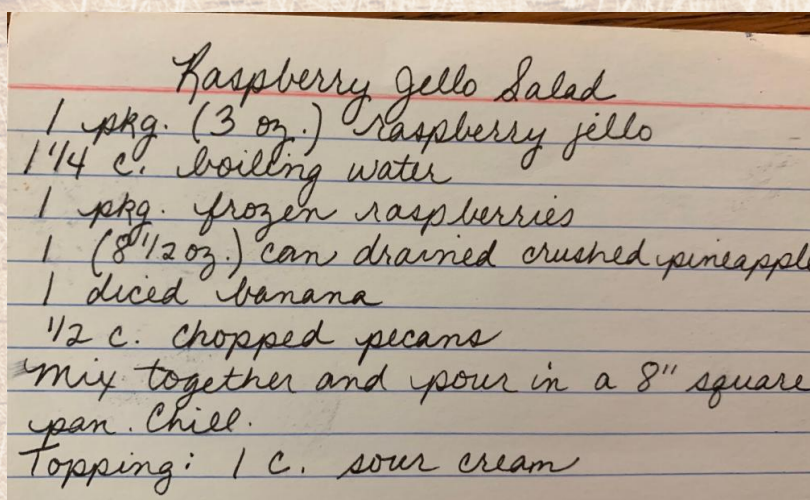 Raspberry Jello Salad
1 pkg. (3 oz.) raspberry jello
1 1/4 c. boiling water
1 pkg. frozen raspberries
1 (8 1/2 oz.) can drained crushed pineapple
1 diced banana
1/2 c. chopped pecans
Mix together and pour in a 8" square
pan. Chill.
Topping: 1 c. sour cream